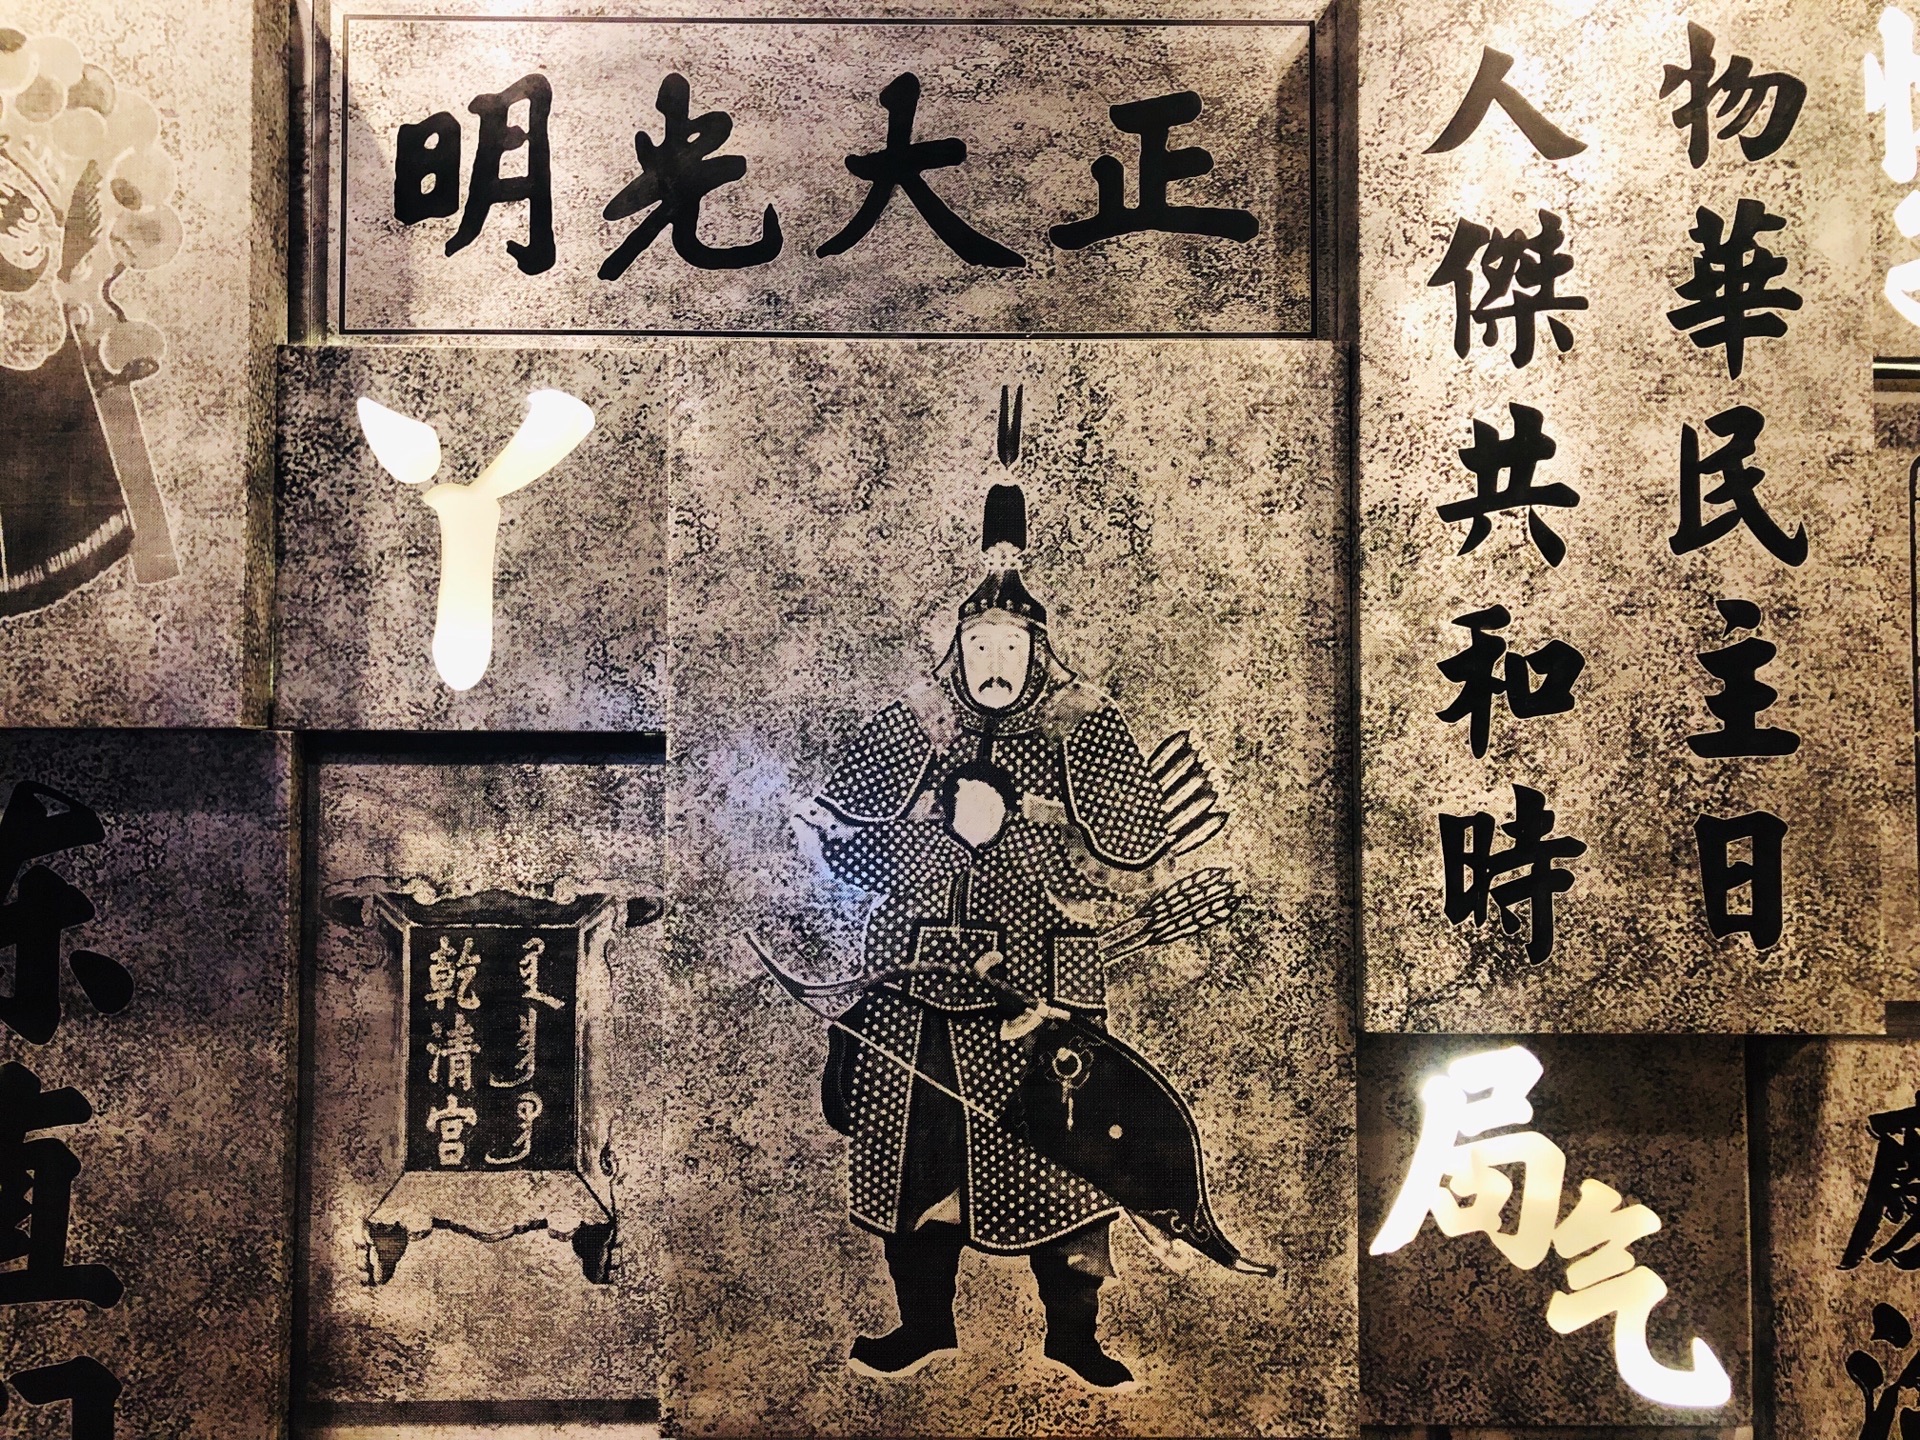 正大光明
物華民主日
人傑共和時
丫
乾清宮
局气